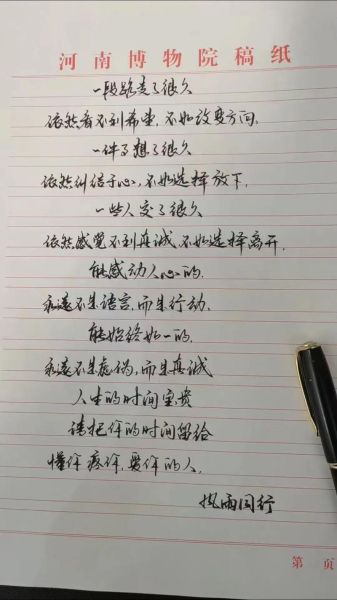 河南博物院稿纸
一段路走了很久
依然看不到希望,不如改变方向.
一件事想了很久
依然纠结于心,不如选择放下.
一些人交了很久
依然感觉不到真诚,不如选择离开.
能感动人心的.
永远不是语言,而是行动.
能始终如一的.
永远不是虚伪,而是真诚
人生的时间宝贵
请把你的时间留给
懂你疼你,爱你的人.
风雨同行
第 页